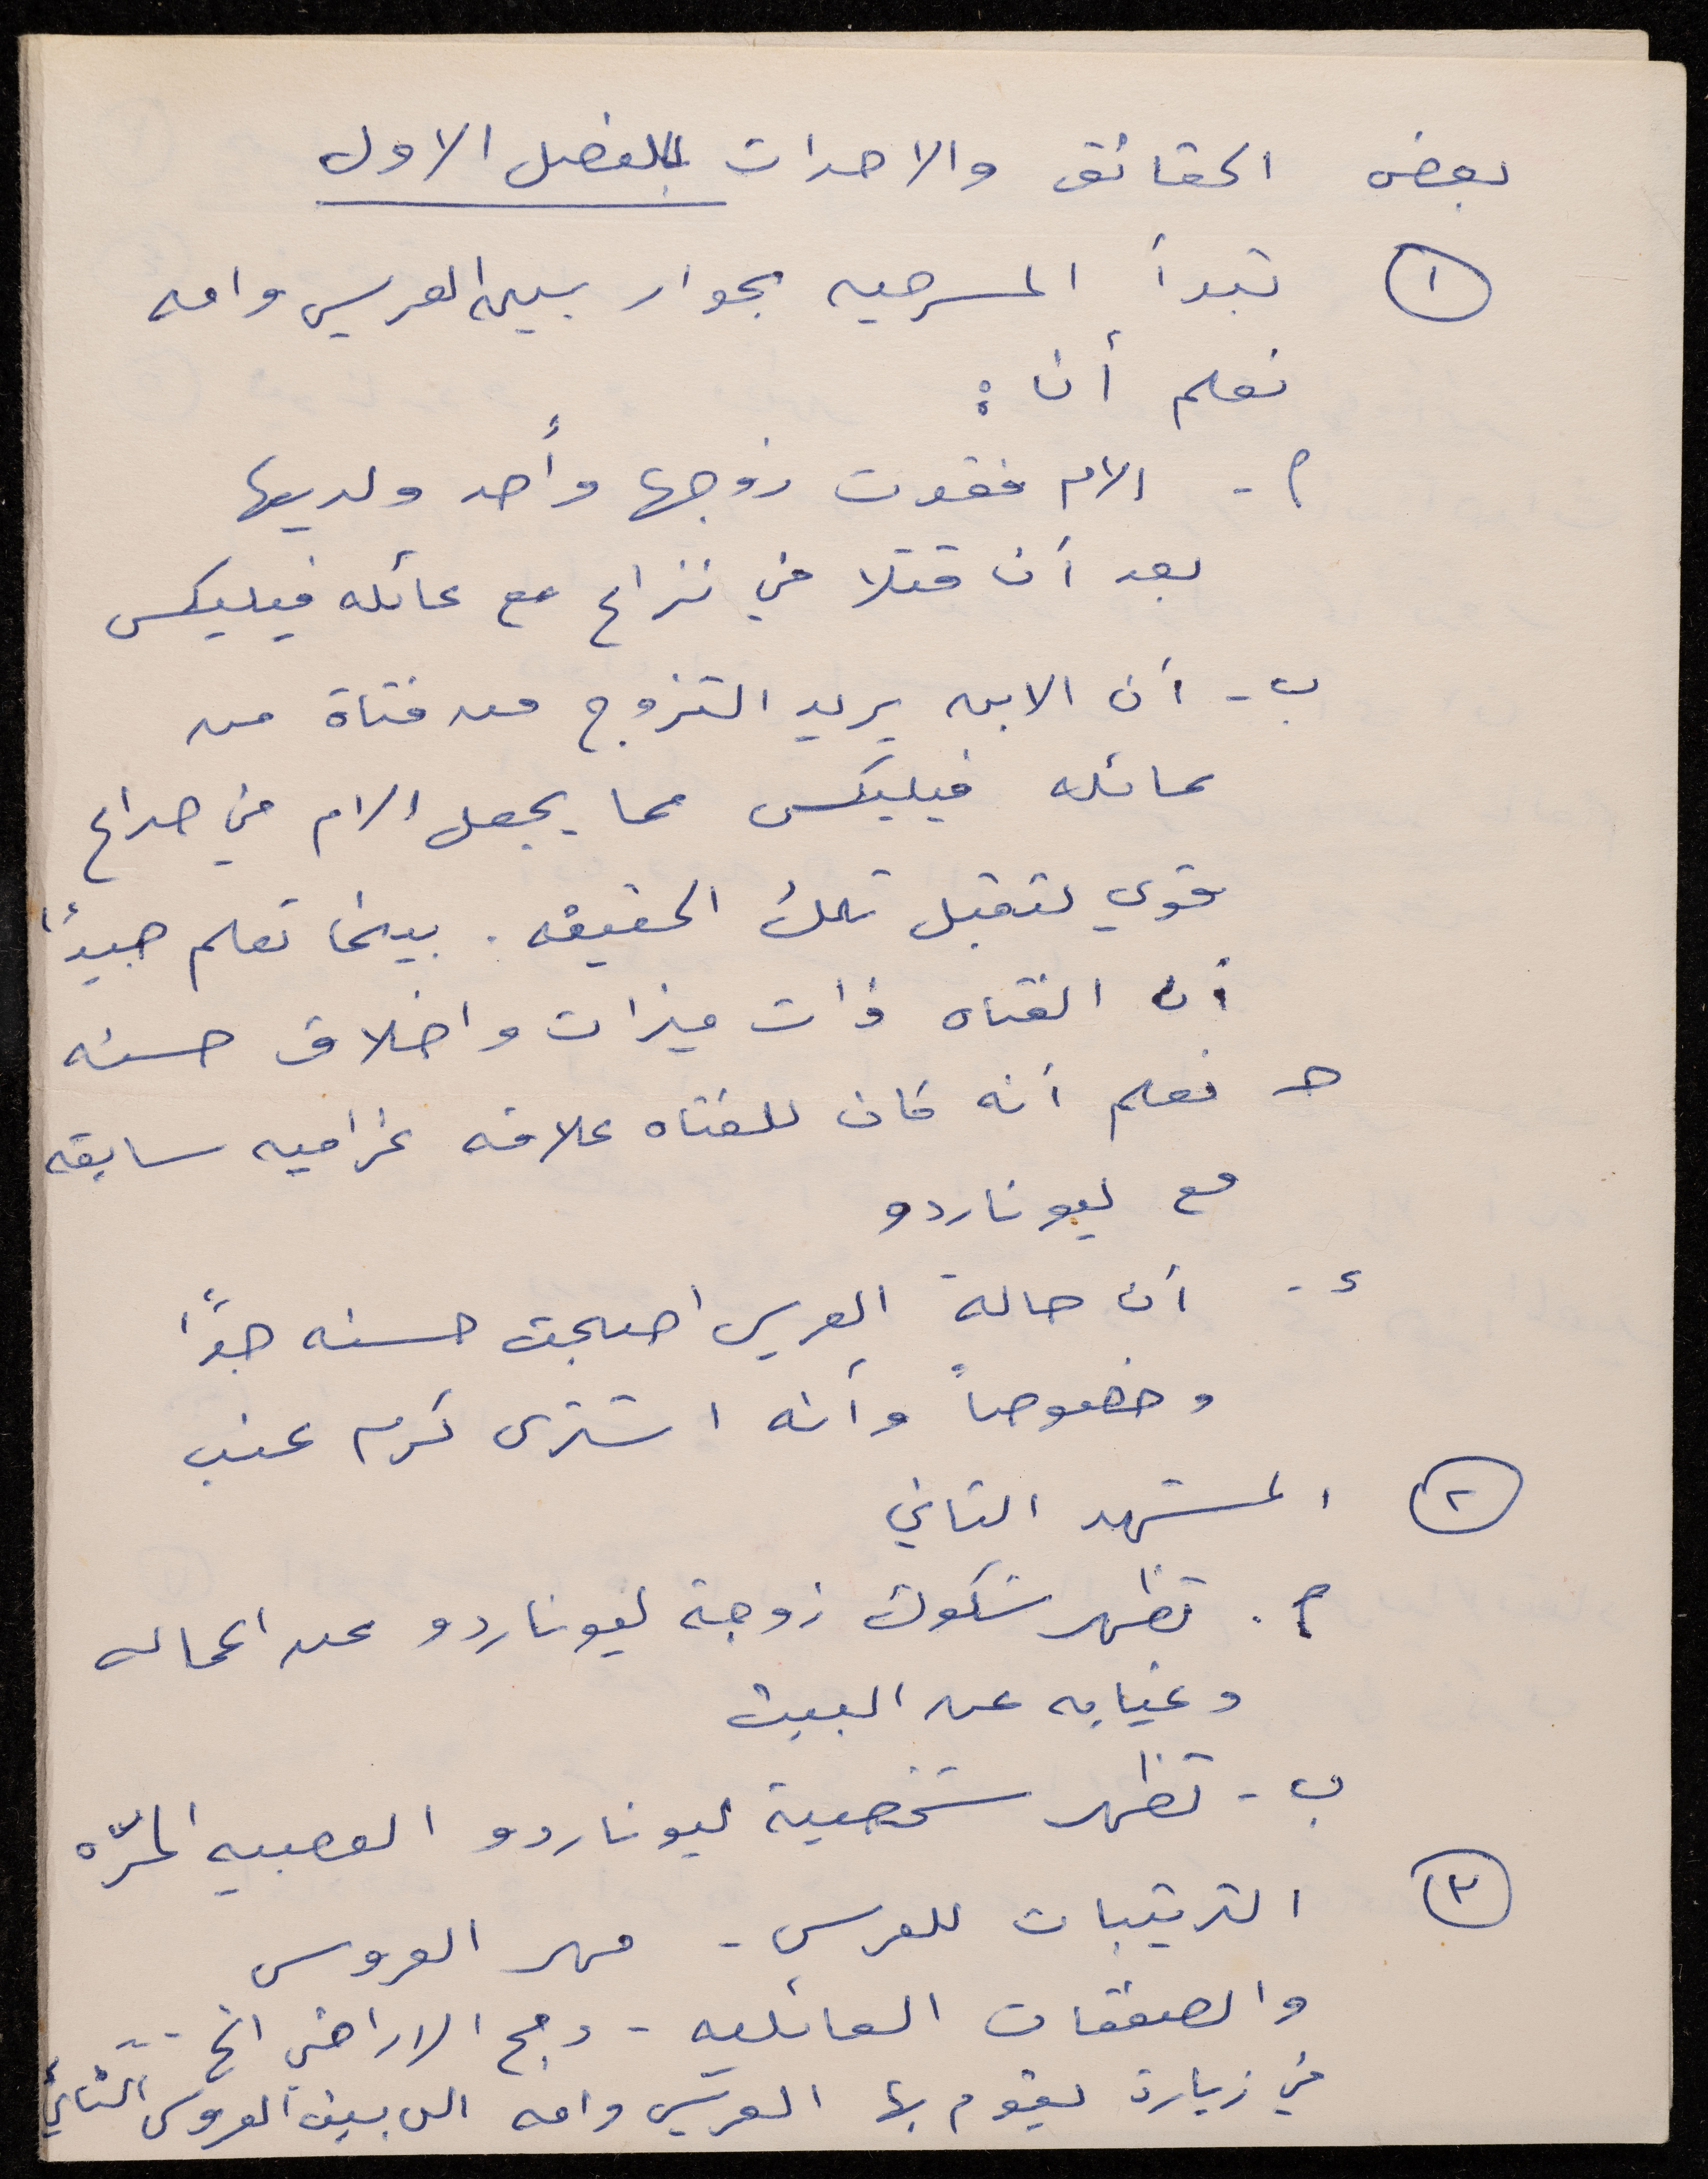 بعض الحقائق والاحداث بالفصل الاول
١ تبدأ المسرحيه بحوار بين العريس وامه
نعلم أن :
أ - الام فقدت زوجها وأحد ولديها
بعد أن قتلا في نزاع مع عائله فيليكس
ب - أن الابن يريد التزوج من فتاة من
عائله فيليكس مما يجعل الام في صراع
قوي لتقبل تلك الحقيقه . بينما تعلم جيداً
أن الفتاه ذات ميزات واخلاق حسنه
حـ نعلم أنه كان للفتاه علاقه غراميه سابقه
مع ليوناردو
د - أن حالة العريس اصبحت حسنه جداً
وخصوصاً وأنه اشترى كرم عنب
٢ المشهد الثاني
أ . تظهر شكوك زوجة ليوناردو عن اعماله
وغيابه عن البيت
ب - تظهر شخصية ليوناردو العصبيه المرّه
٣ الترتيبات للعرس - مهر العروس
والصفقات العائليه - دمج الاراضي الخ ...
في زيارة يقوم بها العريس وامه الى بيت العروس النائي